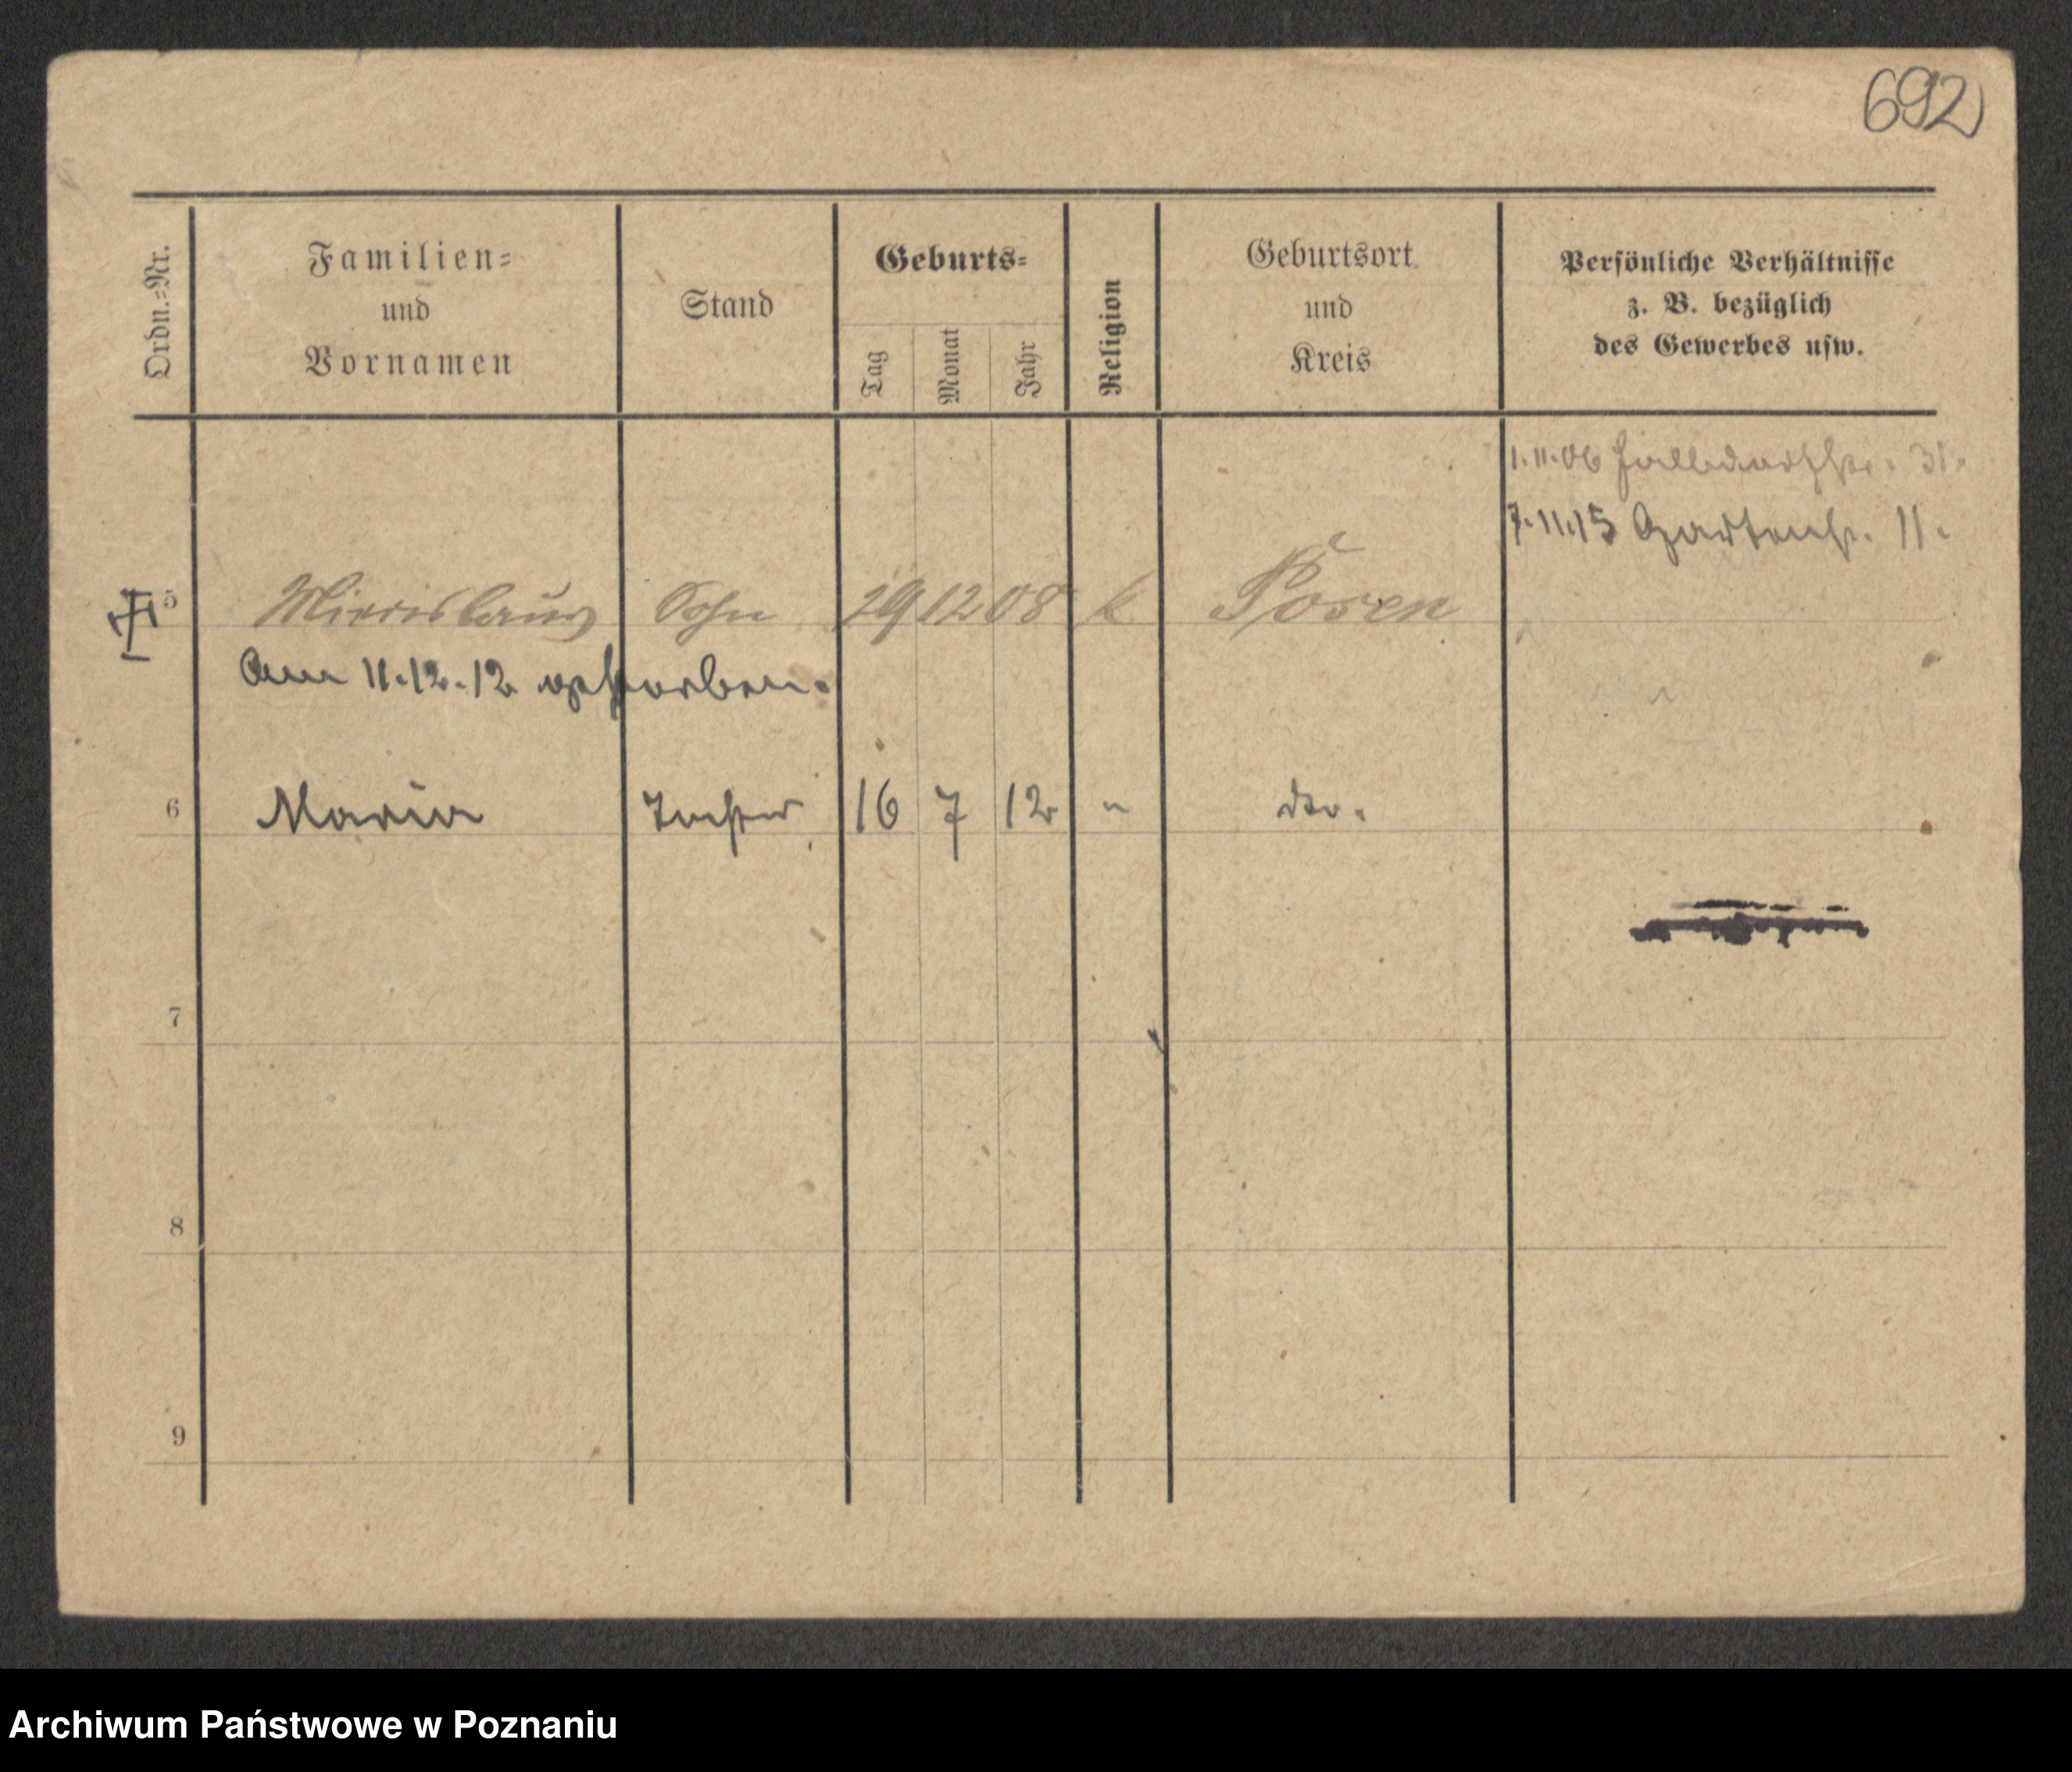 692
Ordn.=Nr.
Familien=
und
Vornamen
Stand
Geburts=
Tag
Monat
Jahr
Religion
Geburtsort
und
Kreis
Persönliche Verhältnisse
z. B. bezüglich
des Gewerbes usw.
1.11.06 31.
7.11.15 Gartenstr. 11.
5 Miecislaus Sohn 29 12 08 k Posen
Am 11.12.12 gestorben.
6 Maria Tochter 16 7 12 " do.
7
8
9
Archiwum Państwowe w Poznaniu